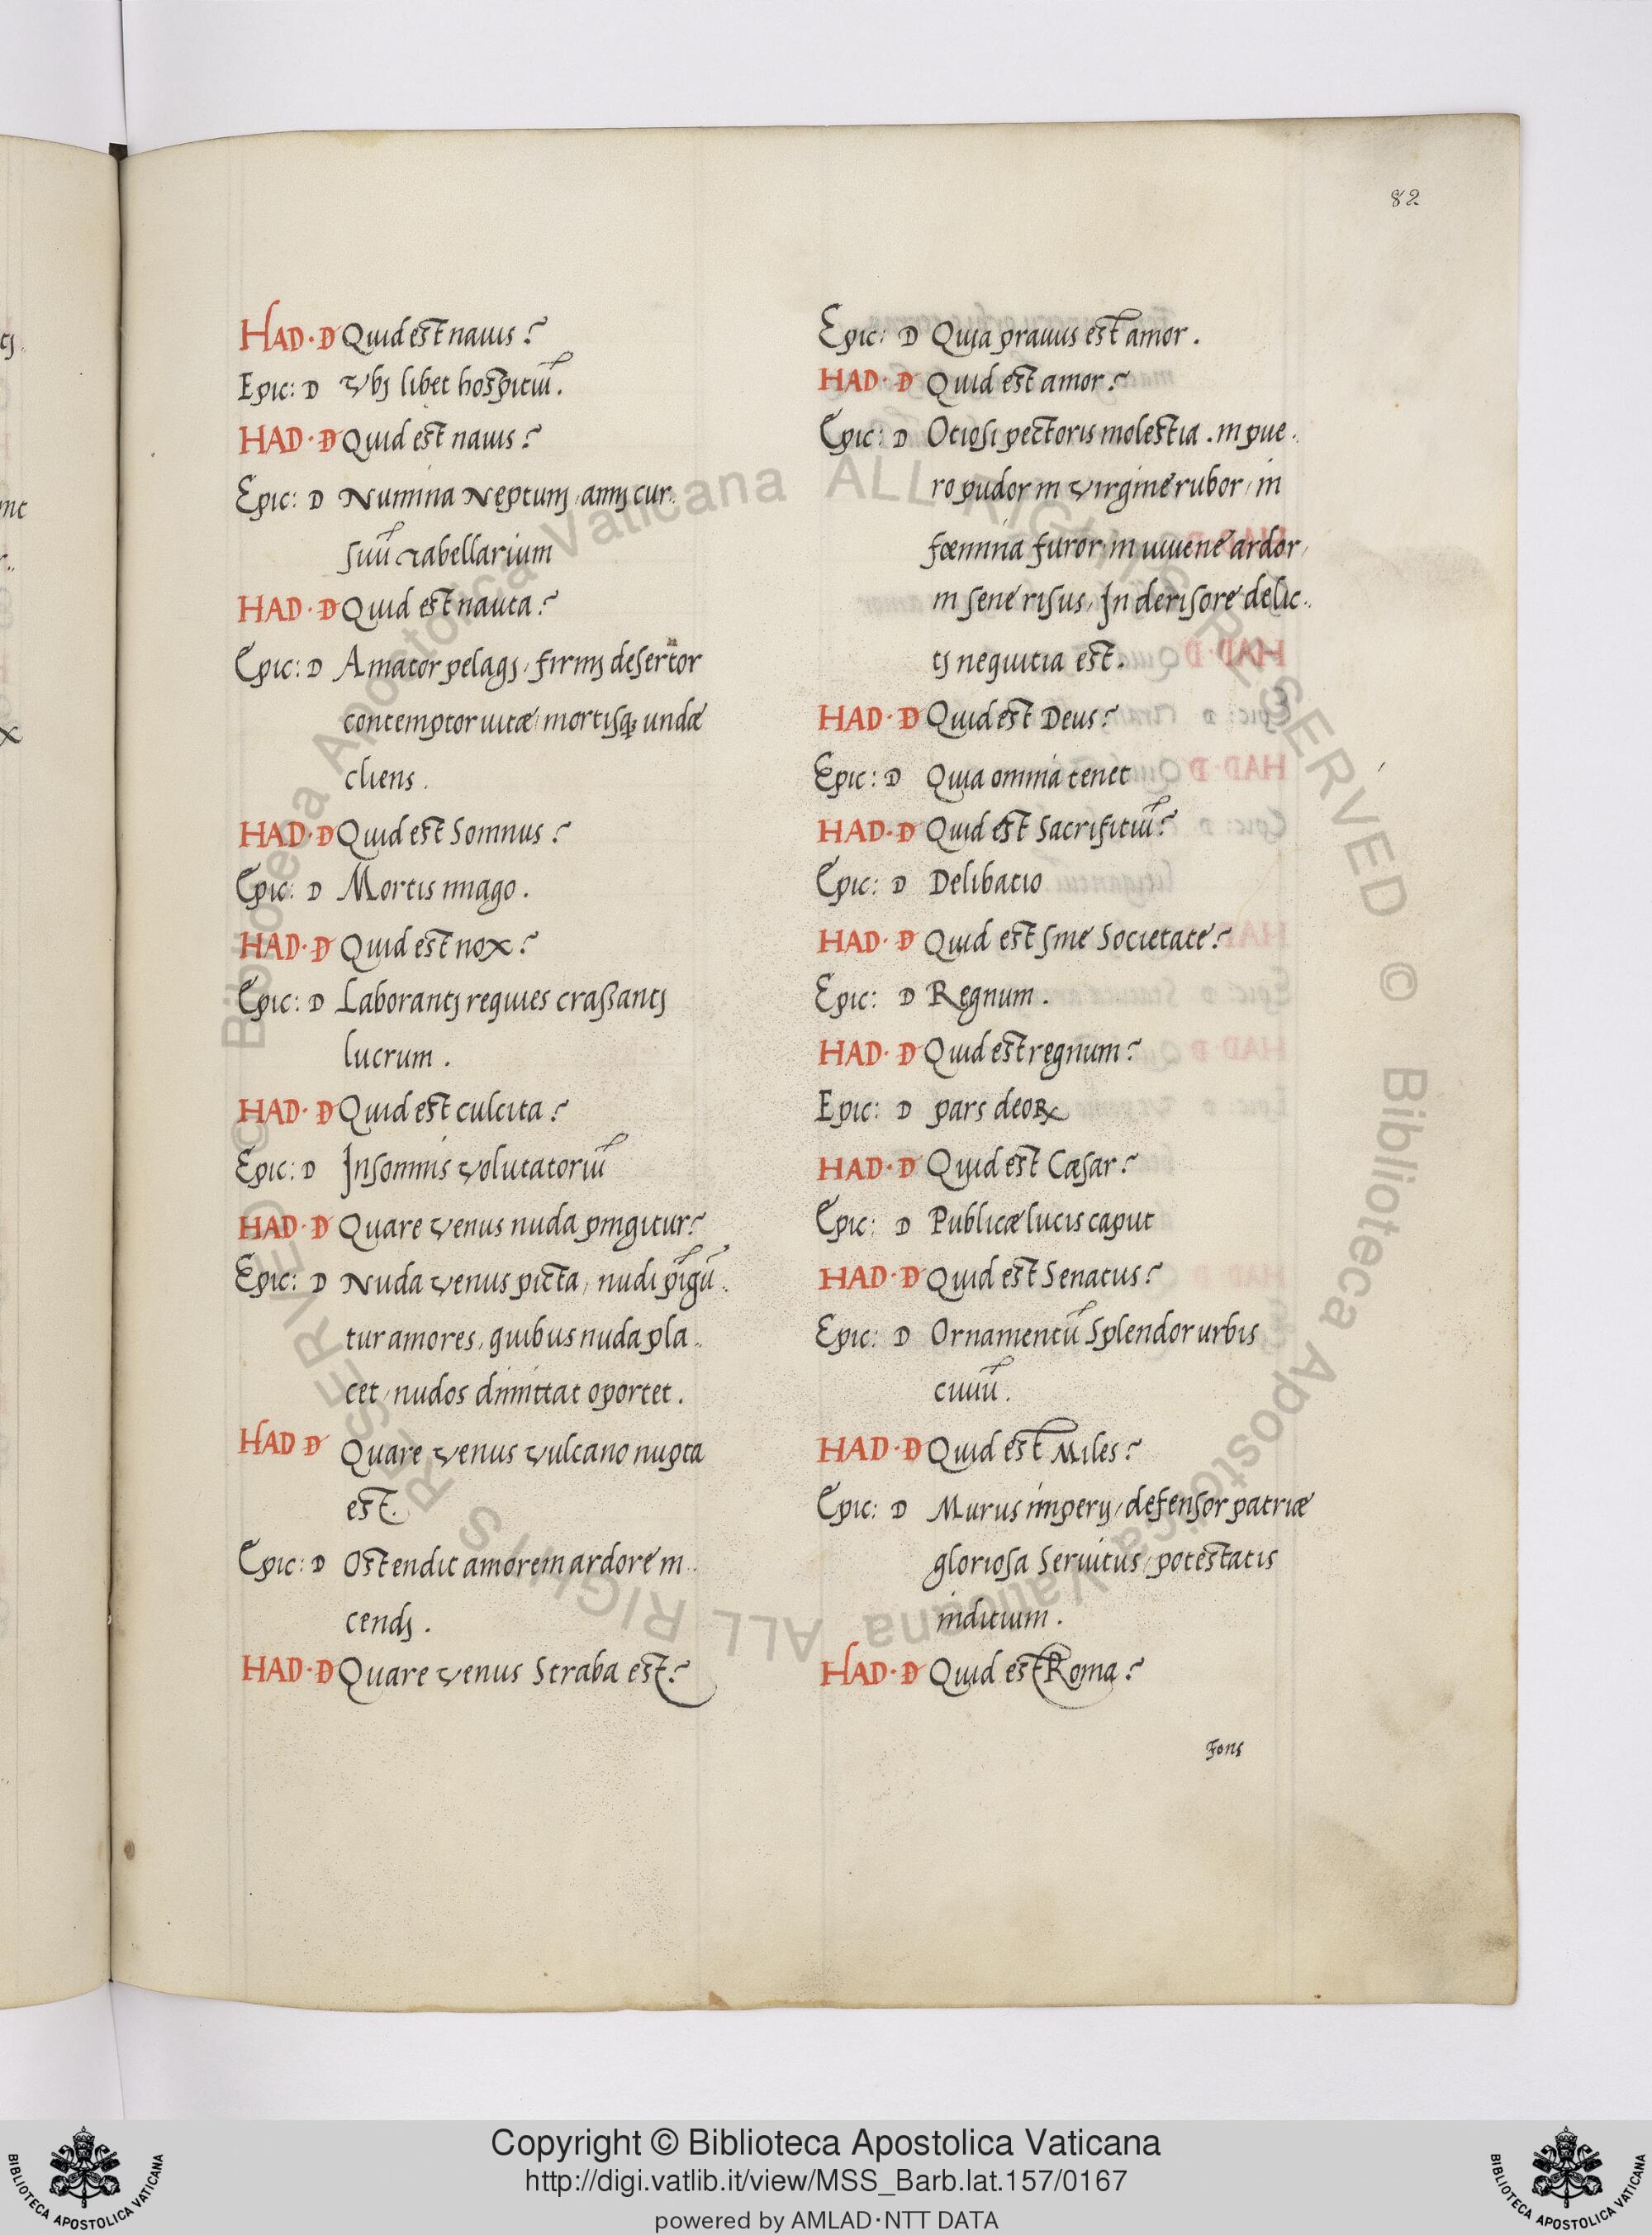 82
HAD · D Quid est nauis?
Epic: D Vbj libet hospitiū.
HAD · D Quid est nauis?
Epic: D Numina Neptunj, annj cur-
suū tabellarium
HAD · D Quid est nauta?
Epic: D Amator pelagj, firmj desertor
contemptor uitæ, mortisq; undæ
cliens.
HAD · D Quid est Somnus?
Epic: D Mortis imago.
HAD · D Quid est nox?
Epic: D Laborantj requies craßantj
lucrum.
HAD · D Quid est culcita?
Epic: D Insomnis volutatoriū
HAD · D Quare venus nuda pingitur?
Epic: D Nuda venus picta, nudi pīgū-
tur amores, quibus nuda pla-
cet, nudos dimittat oportet.
HAD D Quare venus vulcano nupta
est.
Epic: D Ostendit amorem ardorē in-
cendj.
HAD · D Quare venus Straba est?
Epic: D Quia prauus est amor.
HAD · D Quid est amor?
Epic: D Otiosi pectoris molestia. in pue-
ro pudor in virginē rubor, in
fœmina furor, in iuuenē ardor,
in senē risus, In derisorē delic-
tj nequitia est.
HAD · D Quid est Deus?
Epic: D Quia omnia tenet
HAD · D Quid est Sacrifitiū?
Epic: D Delibatio
HAD · D Quid est sinē Societatē?
Epic: D Regnum.
HAD · D Quid est regnum?
Epic: D pars deoꝝ
HAD · D Quid est Cæsar?
Epic: D Publicæ lucis caput
HAD · D Quid est Senatus?
Epic: D Ornamentū Splendor urbis
ciuiū.
HAD · D Quid est Miles?
Epic: D Murus imperij, defensor patriæ
gloriosa Seruitus, potestatis
inditium.
HAD · D Quid est Roma?
Fons
© Biblioteca Apostolica Vaticana ALL RIGHTS RESERVED © Biblioteca Apostolica Vaticana ALL RIGHTS RESERVED
Copyright © Biblioteca Apostolica Vaticana
http://digi.vatlib.it/view/MSS_Barb.lat.157/0167
powered by AMLAD·NTT DATA
BIBLIOTECA APOSTOLICA VATICANA
BIBLIOTECA APOSTOLICA VATICANA